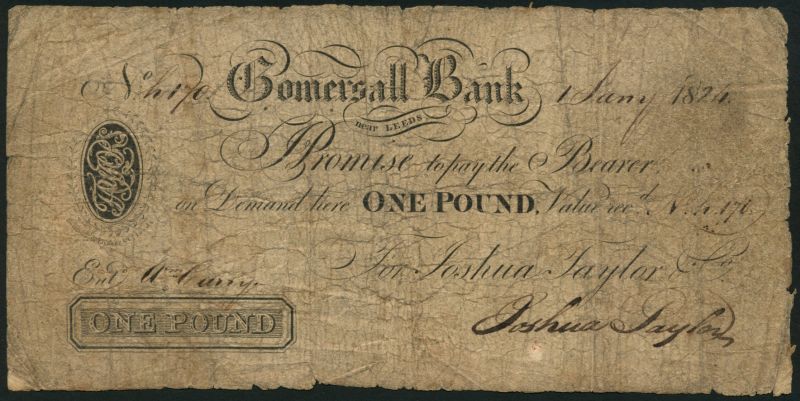 No. 4170 Gomersall Bank 1 Jany 1824.
near LEEDS
I Promise to pay the Bearer
on Demand here ONE POUND, Value recd. No. 4170
For Joshua Taylor & Co.
Entd. Wm. Curry.
ONE POUND
Joshua Taylor